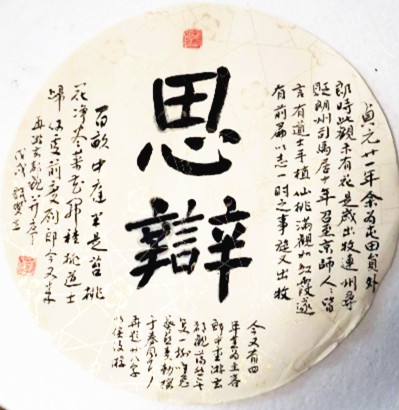 思
辯
貞元廿一年余为屯田員外
郎時此觀未有花是歲出牧連州尋
貶朗州司馬居十年召至京師人人皆
言有道士手植仙桃满觀如红霞遂
有前篇以志一时之事旋又出牧
今又有四
年复为主客
郎中重游玄
都觀荡然无
复一樹唯兔
葵燕麦动摇
于春風耳
再題廿八字
以俟後游
百畝中庭半是苔桃
花净尽菜花开種桃道士
歸何處前度劉郎今又来
再游玄都觀并序
戊戌